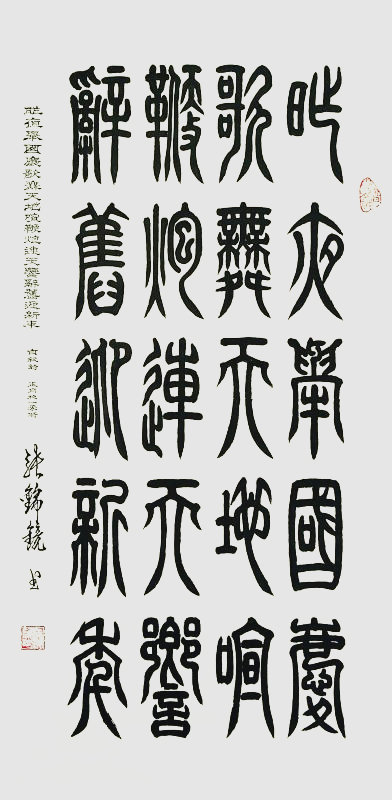 此夜舉國慶
歌舞天地喧
鞭炮連天響
辭舊迎新年
此夜舉國慶歌舞天地喧鞭炮連天響辭舊迎新年
張錦鏡書